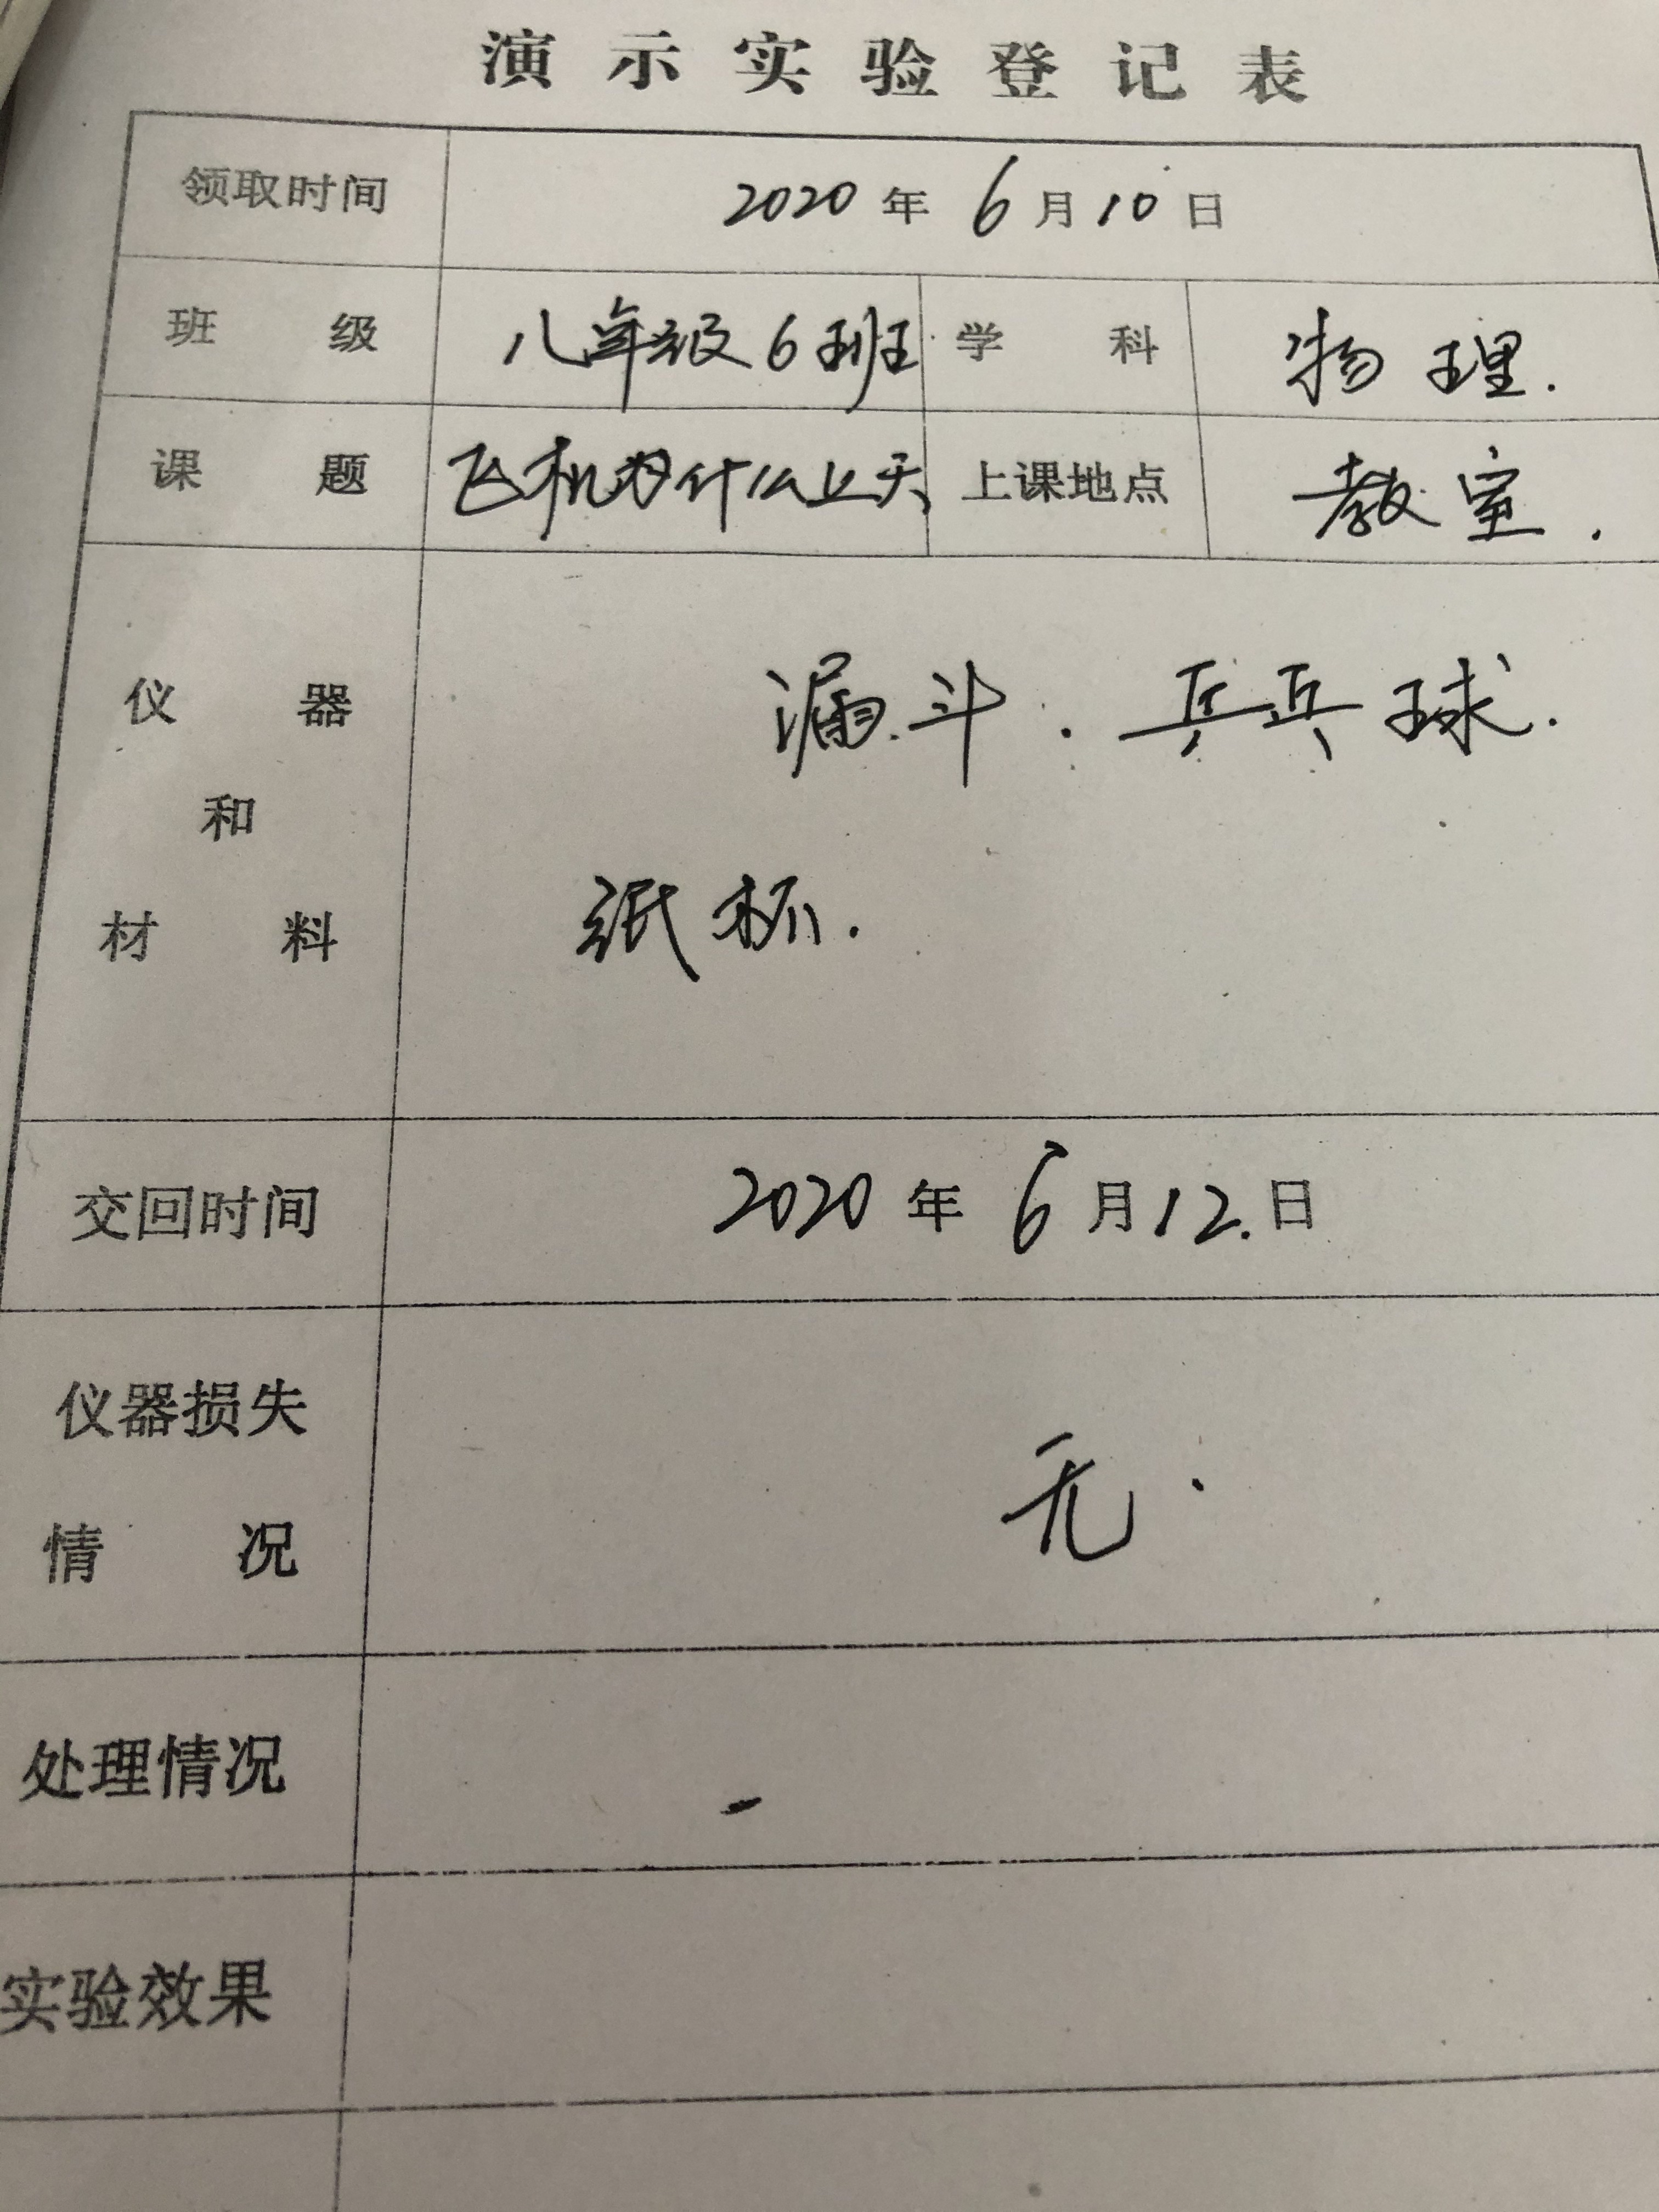 演示实验登记表
领取时间 2020年6月10日
班级 八年级6班 学科 物理.
课题 飞机为什么上天 上课地点 教室.
仪器和材料 漏斗.乒乓球.
纸杯.
交回时间 2020年6月12.日
仪器损失情况 无.
处理情况
实验效果